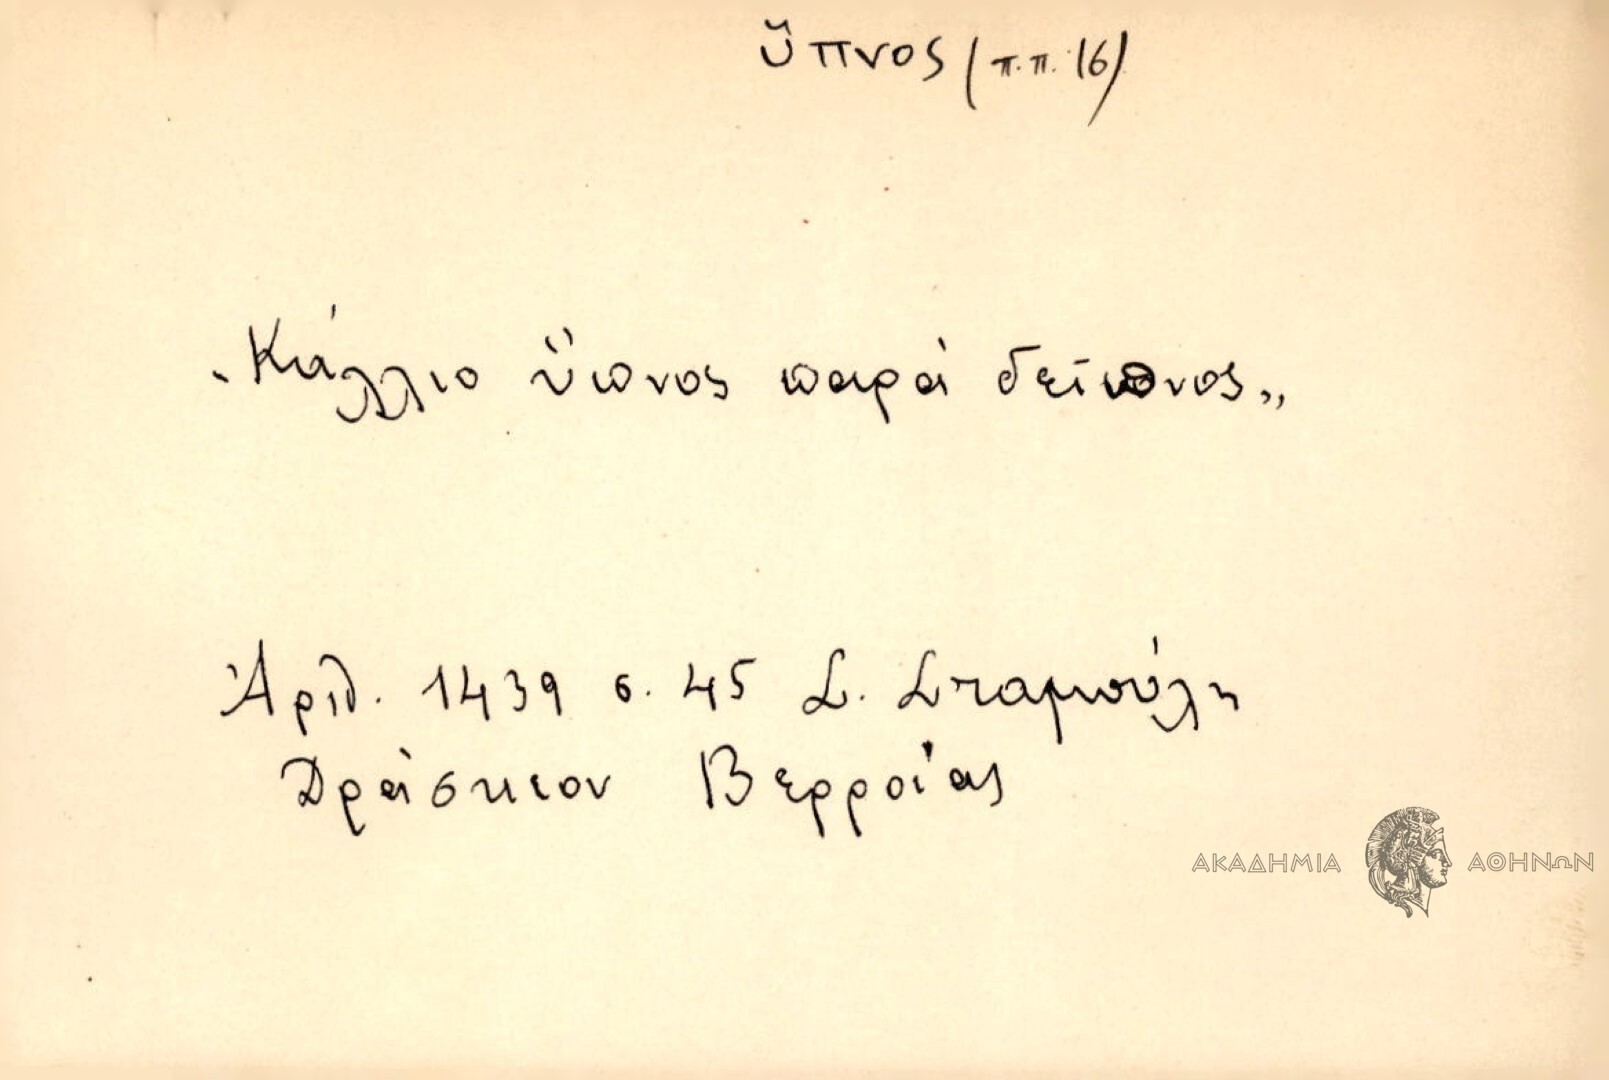 ὕπνος (π.π. 16)
„Κάλλιο ὕπνος παρά δεῖπνος„
Ἀριθ. 1439 σ. 45 Σ. Σταμούλη
Δράσκιον Βερροίας
ΑΚΑΔΗΜΙΑ ΑΘΗΝΩΝ